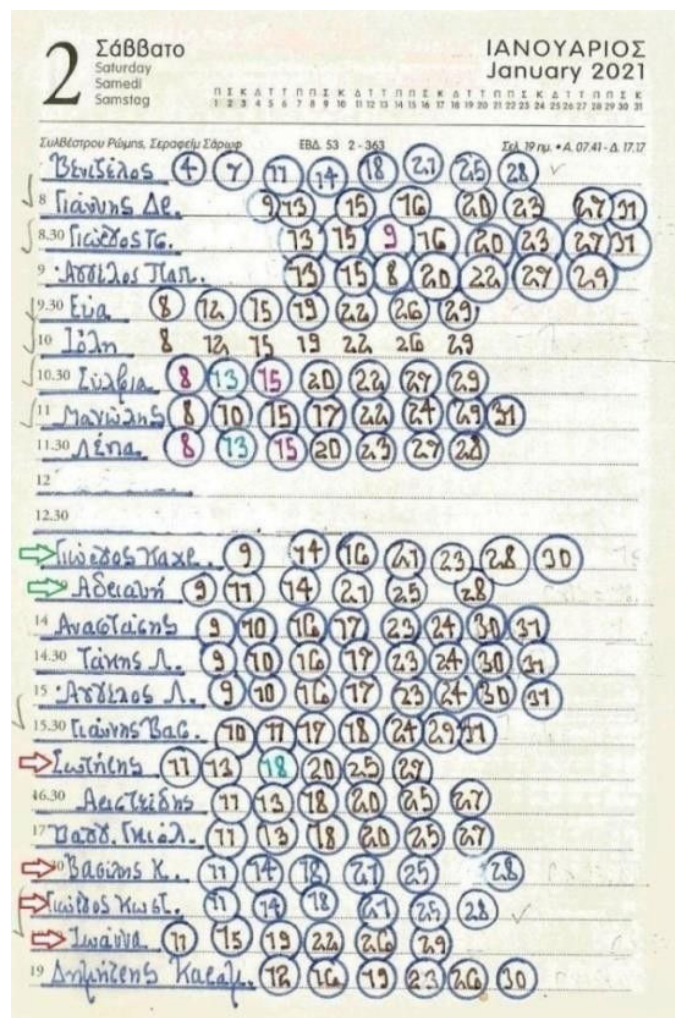 2 Σάββατο ΙΑΝΟΥΑΡΙΟΣ
Saturday January 2021
Samedi
Samstag
Π Σ Κ Δ Τ Τ Π Π Σ Κ Δ Τ Τ Π Π Σ Κ Δ Τ Τ Π Π Σ Κ Δ Τ Τ Π Π Σ Κ
1 2 3 4 5 6 7 8 9 10 11 12 13 14 15 16 17 18 19 20 21 22 23 24 25 26 27 28 29 30 31
Συλβέστρου Ρώμης, Σεραφείμ Σάρωφ ΕΒΔ. 53 2 - 363 Σελ. 19 ημ. • Α. 07.41 - Δ. 17.17
Βενιζέλος 4 7 11 14 18 21 25 28
8 Γιάννης Δρ. 9 13 15 16 20 23 27 31
8.30 Γιώργος Τσ. 13 15 9 16 20 23 27 31
9 Αγγέλος Παπ. 13 15 8 20 22 27 29
9.30 Εύα 8 12 15 19 22 26 29
10 Ιόλη 8 12 15 19 22 26 29
10.30 Σύλβια 8 13 15 20 22 27 29
11 Μανώλης 8 10 15 17 22 24 29 31
11.30 Λένα 8 13 15 20 23 27 28
12
12.30
Γιώργος Καχρ. 9 14 16 21 23 28 30
Αδριανή 9 11 14 21 25 28
14 Αναστάσης 9 10 16 17 23 24 30 31
14.30 Τάκης Λ. 9 10 16 17 23 24 30 31
15 Αγγέλος Λ. 9 10 16 17 23 24 30 31
15.30 Γιάννης Βασ. 10 11 17 18 24 29 31
Σωτήρης 11 13 18 20 25 27
16.30 Αριστείδης 11 13 18 20 25 27
17 Βαγγ. Γκιόλ. 11 13 18 20 25 27
Βασίλης Κ. 11 14 18 21 25 28
Γιώργος Κωστ. 11 14 18 21 25 28
Ιωάννα 11 15 19 22 26 29
19 Δημήτρης Καραμ. 12 16 19 23 26 30